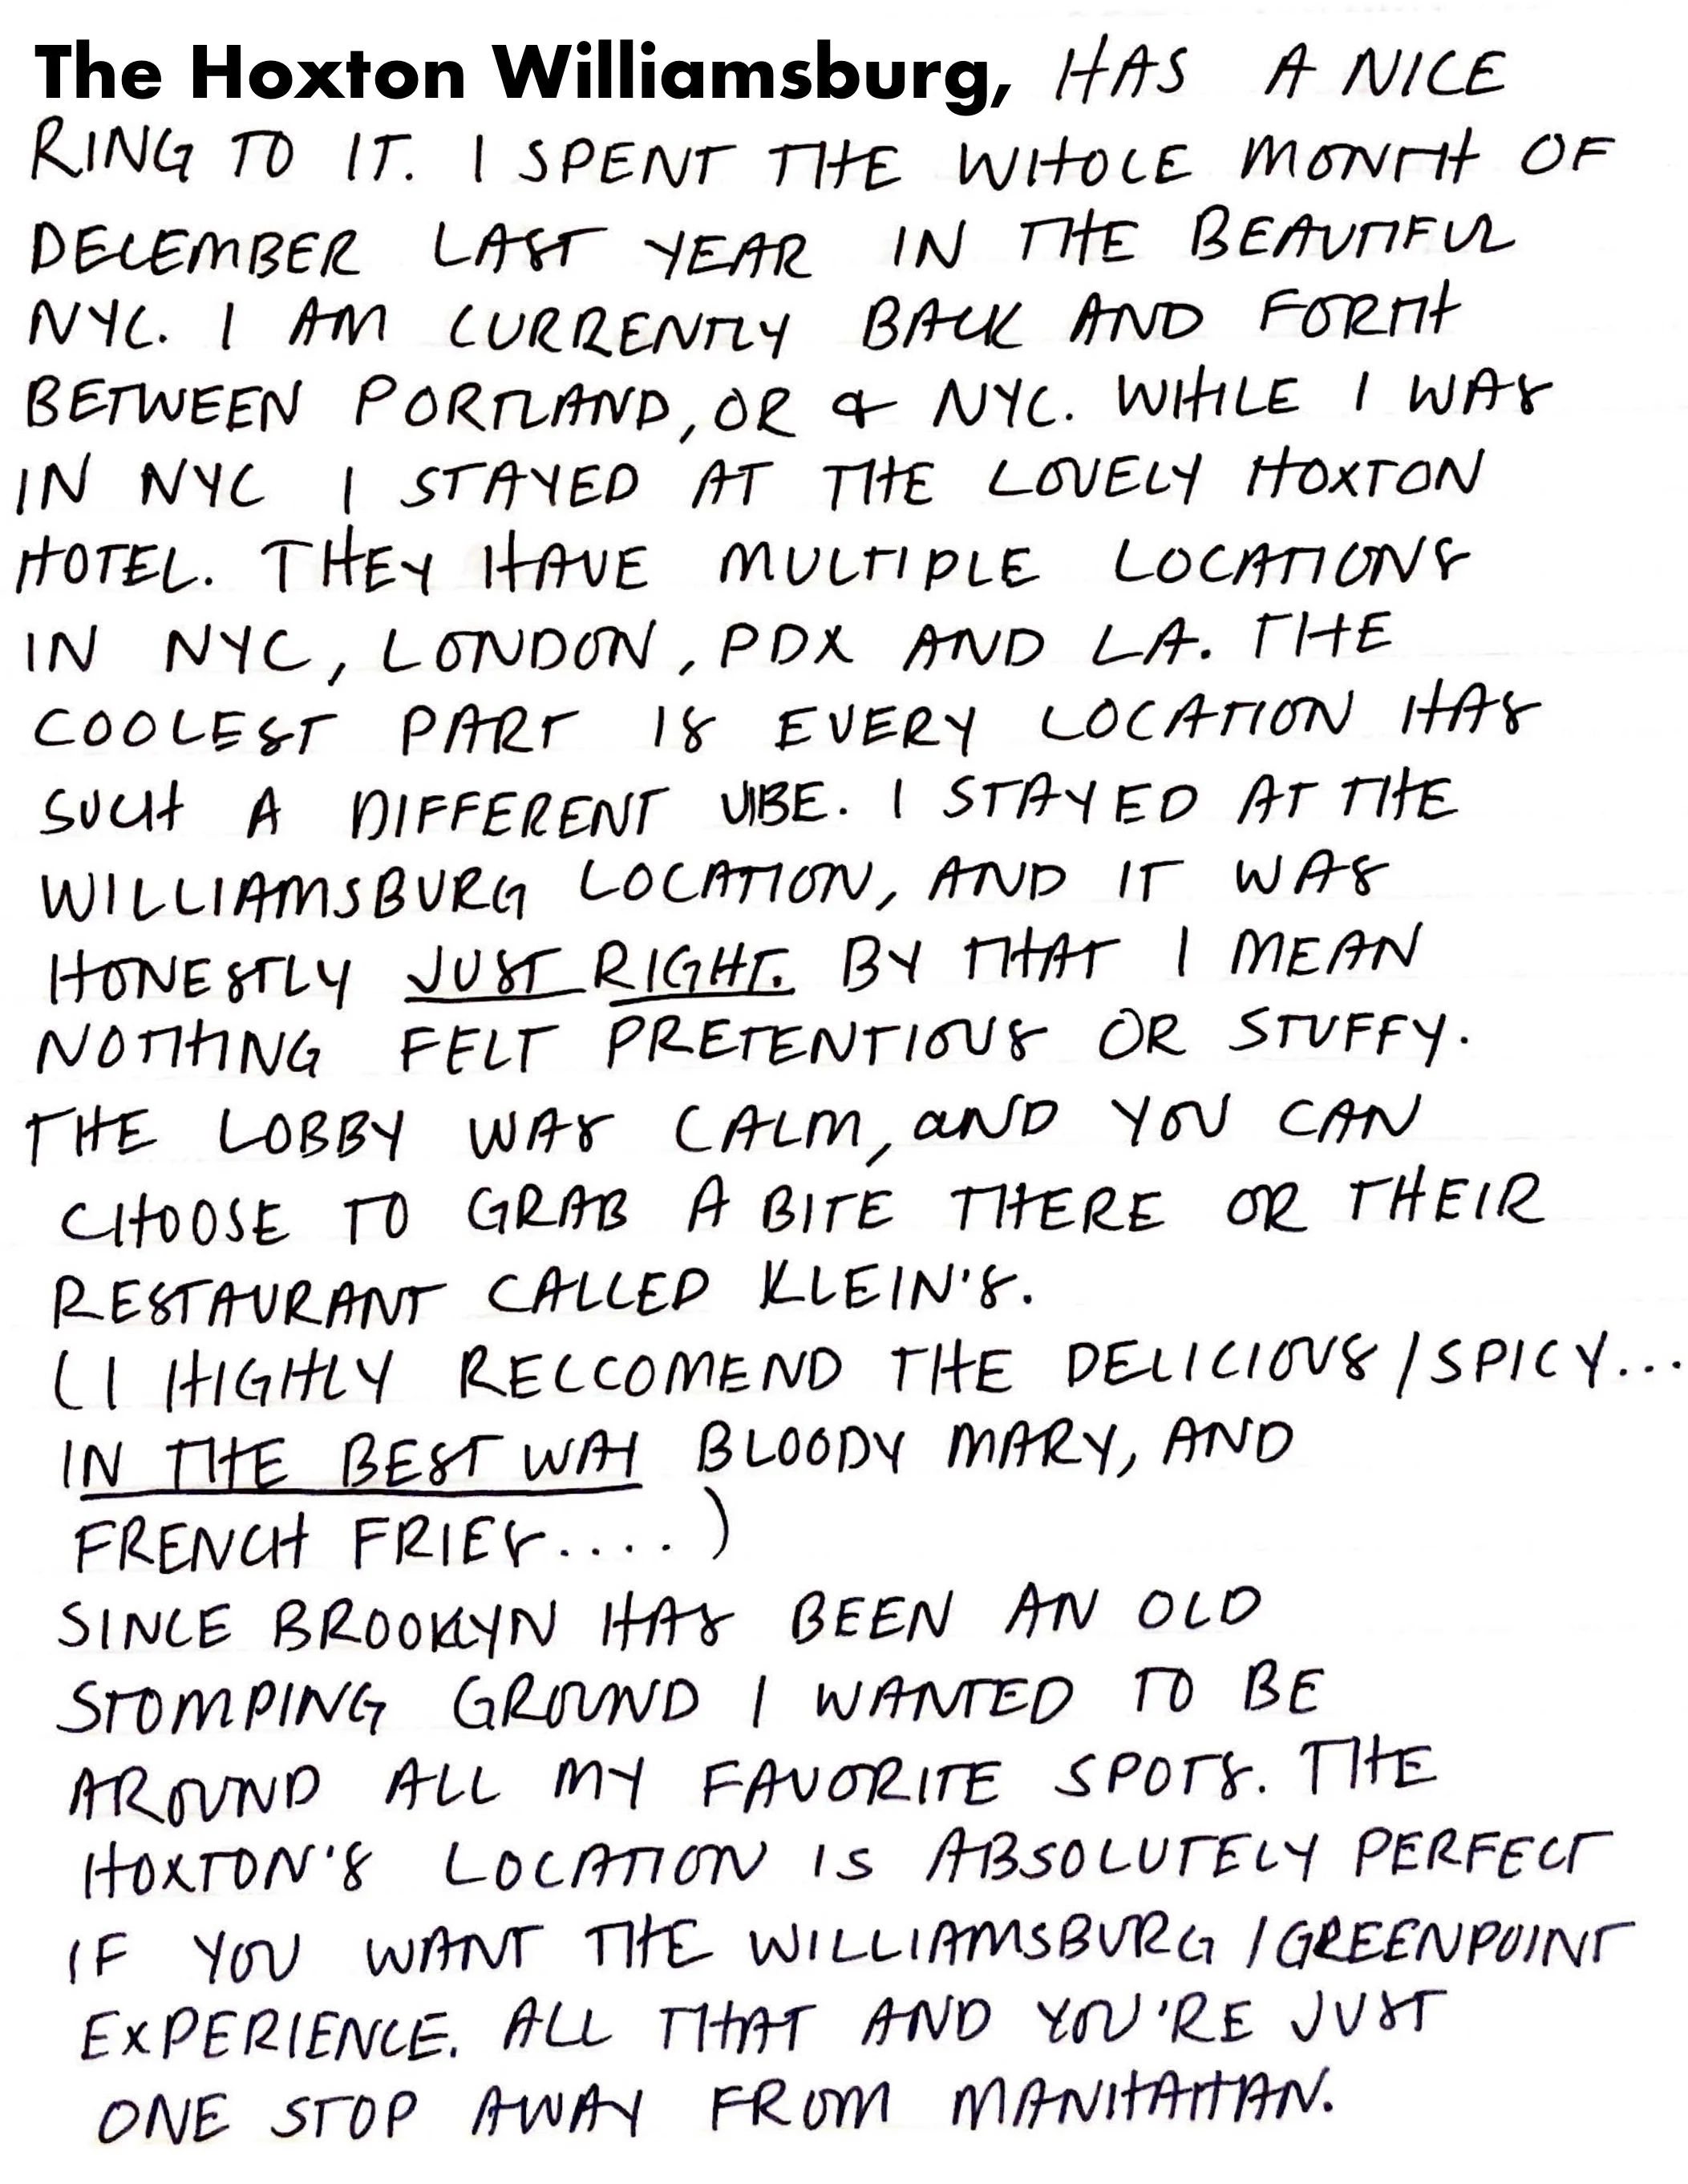 The Hoxton Williamsburg, HAS A NICE
RING TO IT. I SPENT THE WHOLE MONTH OF
DECEMBER LAST YEAR IN THE BEAUTIFUL
NYC. I AM CURRENTLY BACK AND FORTH
BETWEEN PORTLAND, OR & NYC. WHILE I WAS
IN NYC I STAYED AT THE LOVELY HOXTON
HOTEL. THEY HAVE MULTIPLE LOCATIONS
IN NYC, LONDON, PDX AND LA. THE
COOLEST PART IS EVERY LOCATION HAS
SUCH A DIFFERENT VIBE. I STAYED AT THE
WILLIAMSBURG LOCATION, AND IT WAS
HONESTLY JUST RIGHT. BY THAT I MEAN
NOTHING FELT PRETENTIOUS OR STUFFY.
THE LOBBY WAS CALM, AND YOU CAN
CHOOSE TO GRAB A BITE THERE OR THEIR
RESTAURANT CALLED KLEIN'S.
(I HIGHLY RECCOMEND THE DELICIOUS/SPICY...
IN THE BEST WAY BLOODY MARY, AND
FRENCH FRIES....)
SINCE BROOKLYN HAS BEEN AN OLD
STOMPING GROUND I WANTED TO BE
AROUND ALL MY FAVORITE SPOTS. THE
HOXTON'S LOCATION IS ABSOLUTELY PERFECT
IF YOU WANT THE WILLIAMSBURG/GREENPOINT
EXPERIENCE. ALL THAT AND YOU'RE JUST
ONE STOP AWAY FROM MANHATTAN.